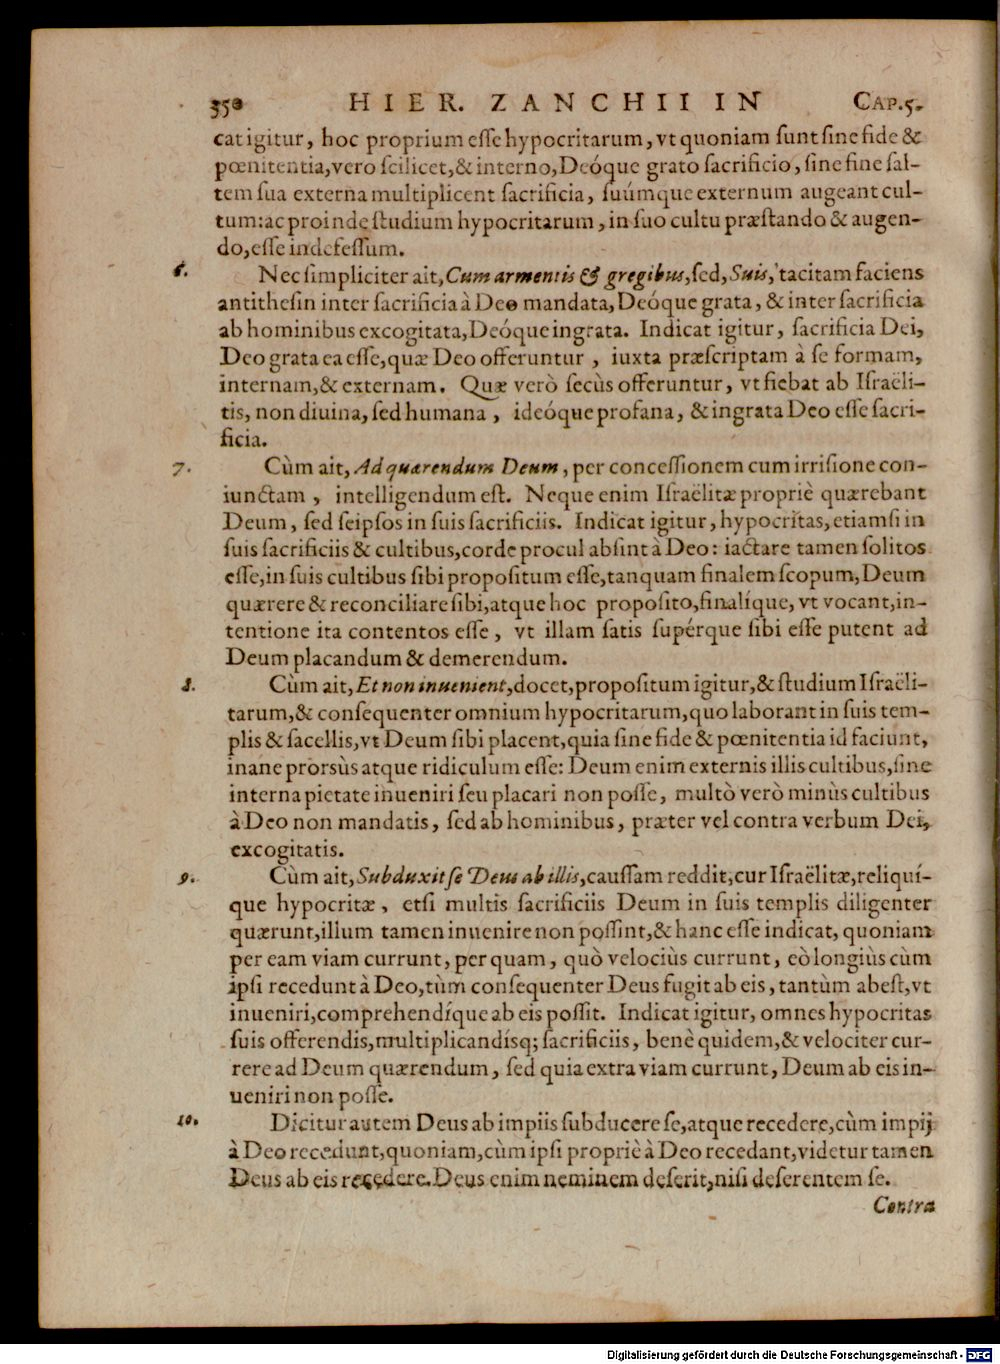 350 HIER. ZANCHII IN CAP.5.
cat igitur, hoc proprium esse hypocritarum, vt quoniam sunt sine fide &
pœnitentia, vero scilicet, & interno, Deóque grato sacrificio, sine fine sal-
tem sua externa multiplicent sacrificia, suúmque externum augeant cul-
tum: ac proinde studium hypocritarum, in suo cultu præstando & augen-
do, esse indefessum.
6. Nec simpliciter ait, Cum armentis & gregibus, sed, Suis, tacitam faciens
antithesin inter sacrificia à Deo mandata, Deóque grata, & inter sacrificia
ab hominibus excogitata, Deóque ingrata. Indicat igitur, sacrificia Dei,
Deo grata ea esse, quæ Deo offeruntur, iuxta præscriptam à se formam,
internam, & externam. Quæ verò secùs offeruntur, vt fiebat ab Israëli-
tis, non diuina, sed humana, ideóque profana, & ingrata Deo esse sacri-
ficia.
7. Cùm ait, Ad quærendum Deum, per concessionem cum irrisione con-
iunctam, intelligendum est. Neque enim Israëlitæ propriè quærebant
Deum, sed seipsos in suis sacrificiis. Indicat igitur, hypocritas, etiamsi in
suis sacrificiis & cultibus, corde procul absint à Deo: iactare tamen solitos
esse, in suis cultibus sibi propositum esse, tanquam finalem scopum, Deum
quærere & reconciliare sibi, atque hoc proposito, finalíque, vt vocant, in-
tentione ita contentos esse, vt illam satis supérque sibi esse putent ad
Deum placandum & demerendum.
8. Cùm ait, Et non inuenient, docet, propositum igitur, & studium Israëli-
tarum, & consequenter omnium hypocritarum, quo laborant in suis tem-
plis & sacellis, vt Deum sibi placent, quia sine fide & pœnitentia id faciunt,
inane prorsùs atque ridiculum esse: Deum enim externis illis cultibus, sine
interna pietate inueniri seu placari non posse, multò verò minùs cultibus
à Deo non mandatis, sed ab hominibus, præter vel contra verbum Dei,
excogitatis.
9. Cùm ait, Subduxit se Deus ab illis, caussam reddit, cur Israëlitæ, reliquí-
que hypocritæ, etsi multis sacrificiis Deum in suis templis diligenter
quærunt, illum tamen inuenire non possint, & hanc esse indicat, quoniam
per eam viam currunt, per quam, quò velociùs currunt, eò longiùs cùm
ipsi recedunt à Deo, tùm consequenter Deus fugit ab eis, tantùm abest, vt
inueniri, comprehendíque ab eis possit. Indicat igitur, omnes hypocritas
suis offerendis, multiplicandísq; sacrificiis, benè quidem, & velociter cur-
rere ad Deum quærendum, sed quia extra viam currunt, Deum ab eis in-
ueniri non posse.
10. Dicitur autem Deus ab impiis subducere se, atque recedere, cùm impij
à Deo recedunt, quoniam, cùm ipsi propriè à Deo recedant, videtur tamen
Deus ab eis recedere. Deus enim neminem deserit, nisi deserentem se.
Contra
Digitalisierung gefördert durch die Deutsche Forschungsgemeinschaft - DFG